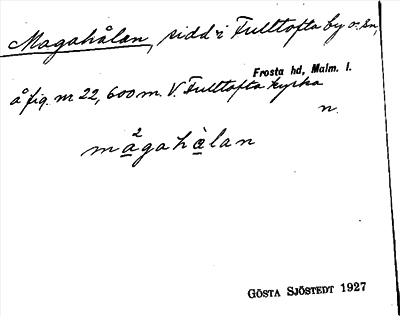 Magahålan, sidd i Fulltofta by o. sn,
Frosta hd, Malm. l.
å fig. nr 22, 600 m. V. Fulltofta kyrka
n.
magahàlan
GÖSTA SJÖSTEDT 1927